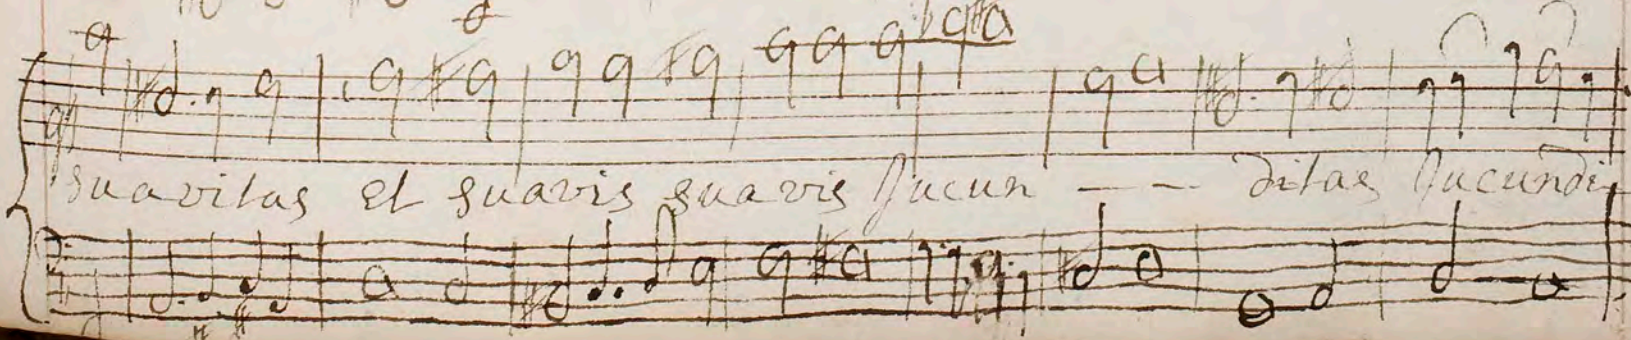 Suavitas et suavis suavis Jucun - - ditas Jucundi